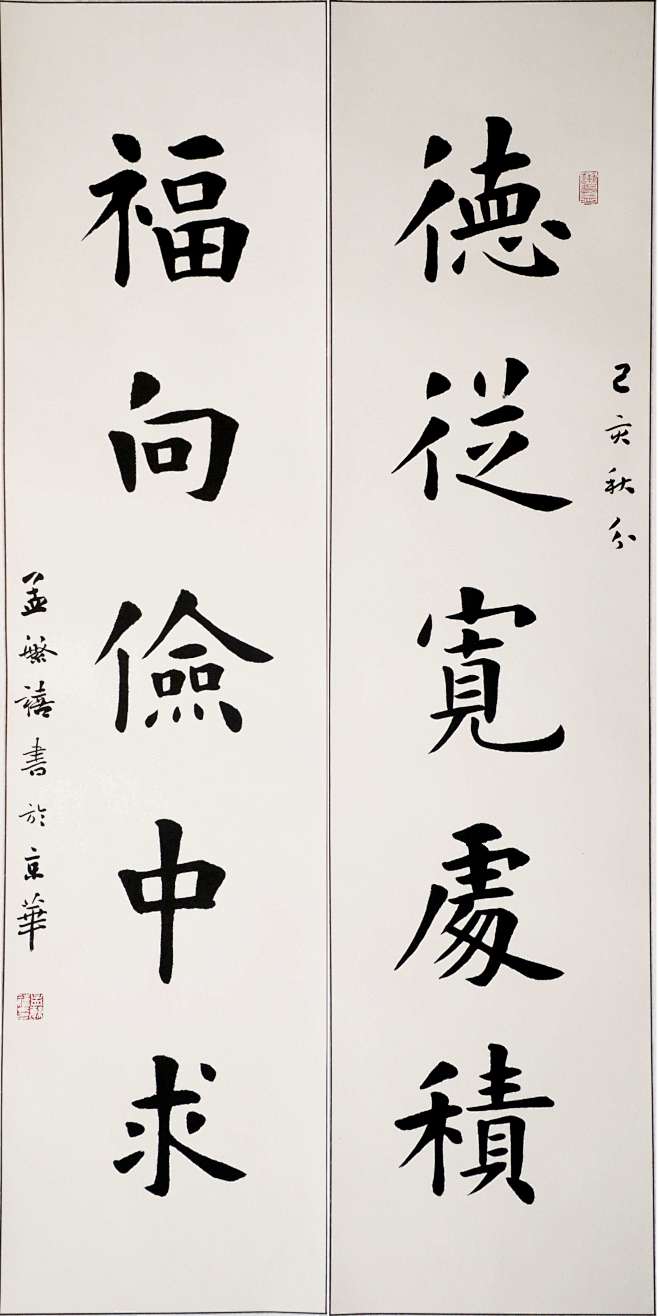 德從寬處積
己亥秋分
福向儉中求
孟繁禧書於京華